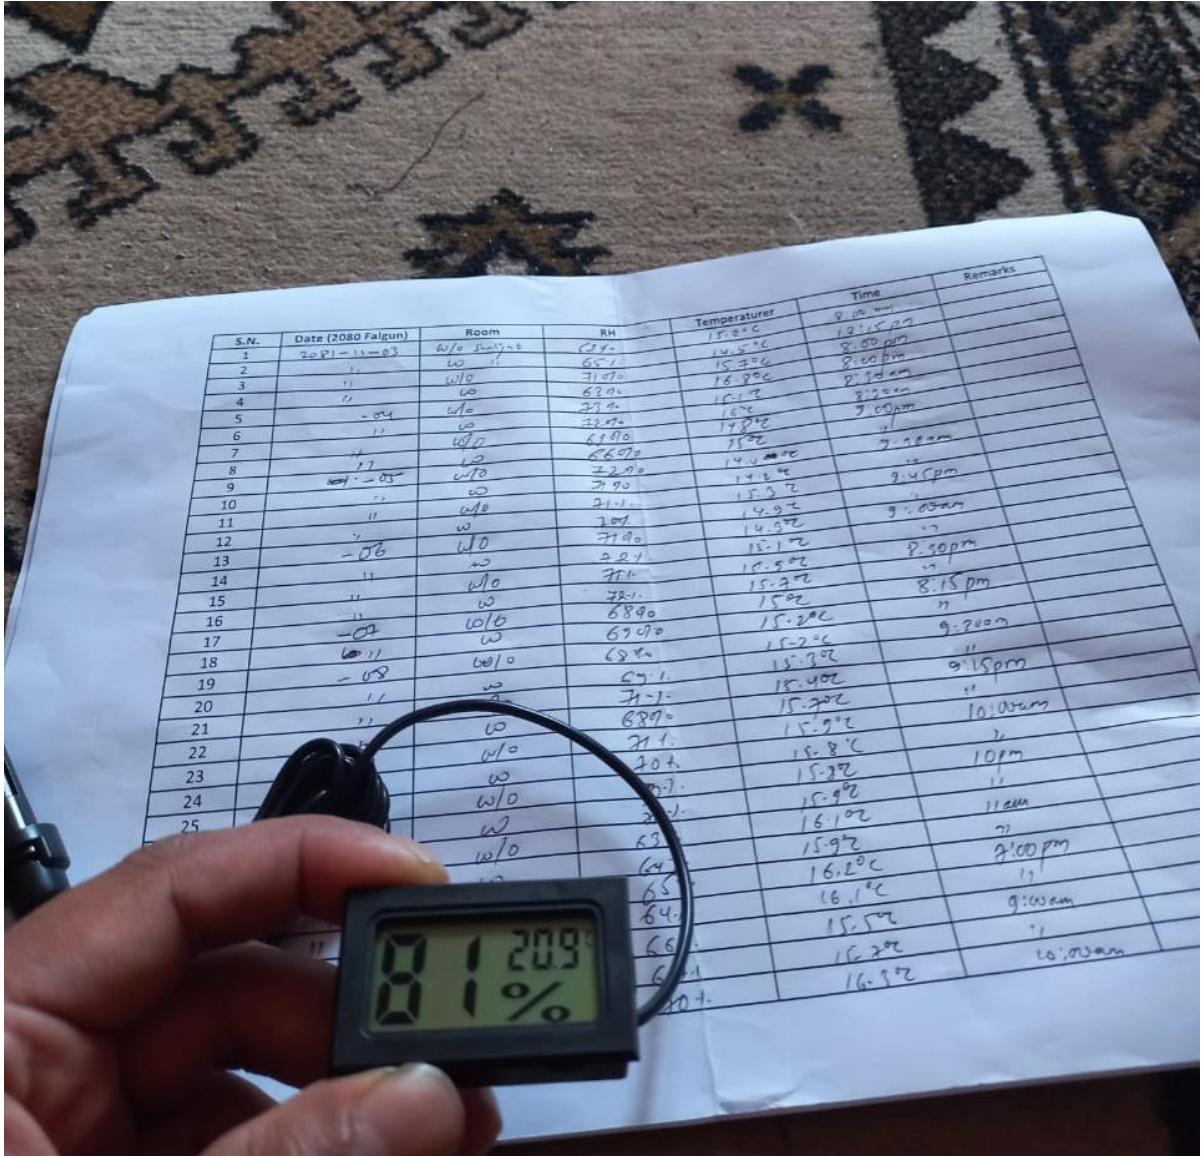 S.N. Date (2080 Falgun) Room RH Temperaturer Time Remarks
1 2081-11-03 w/o Sunlight 69% 15.2°C 8:00 am
2 " w " 65% 14.5°C 12:15 pm
3 " w/o 71% 15.7°C 8:00 pm
4 " w 63% 16.8°C 8:00 pm
5 -04 w/o 73% 15.1°C 8:30am
6 " w 72% 16°C 8:30am
7 " w/o 69% 14.8°C 9:00pm
8 " w 66% 15°C "
9 -05 w/o 72% 14.4°C 9:30am
10 " w 71% 14.2°C "
11 " w/o 71% 15.3°C 9:45pm
12 " w 70% 14.9°C "
13 -06 w/o 71% 14.9°C 9:00am
14 " w 72% 15.1°C "
15 " w/o 71% 15.9°C 8:30pm
16 " w 72% 15.7°C "
17 -07 w/o 68% 15°C 8:15 pm
18 " w 69% 15.2°C "
19 -08 w/o 68% 15.2°C 9:200am
20 " w 69% 15.3°C "
21 " 71% 15.4°C 9:15pm
22 w 68% 15.7°C "
23 w/o 71% 15.9°C 10:00am
24 w 70% 15.8°C "
25 w/o 15.8°C 10pm
w 15.9°C "
w/o 63 16.1°C 11am
64 15.9°C "
65 16.2°C 7:00 pm
64 16.1°C "
" 66 15.5°C 9:00am
15.7°C "
70% 16.3°C 10:00am
81% 20.9°C